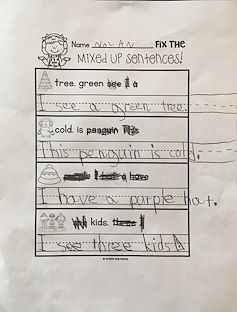 Name NOLAN FIX THE
MIXED UP SENTENCES!
tree. green see I a
I see a green tree.
cold. is penguin This
This penguin is cold.
I a have
I have a purple hat.
kids. three I
I see three kids.